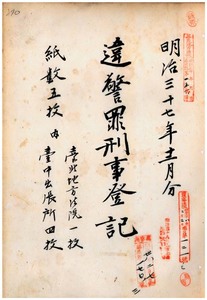 190
明治三十七年十二月分
違警罪刑事登記
紙数五枚内
臺北地方法院一枚
臺中出張所四枚